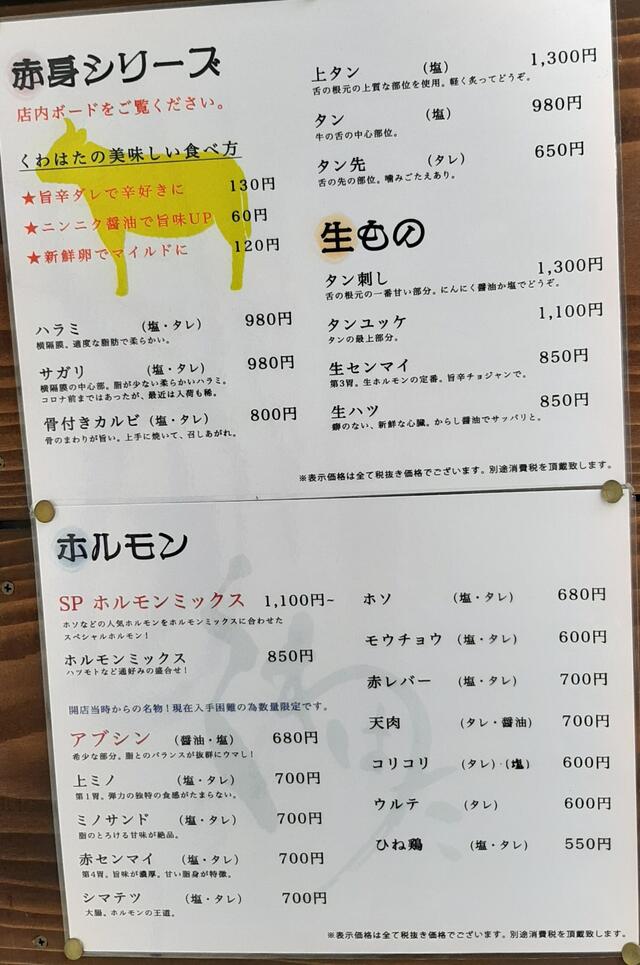 赤身シリーズ
店内ボードをご覧ください。
くわはたの美味しい食べ方
★旨辛ダレで辛好きに 130円
★ニンニク醤油で旨味UP 60円
★新鮮卵でマイルドに 120円
ハラミ (塩・タレ) 980円
横隔膜。適度な脂肪で柔らかい。
サガリ (塩・タレ) 980円
横隔膜の中心部。脂が少ない柔らかいハラミ。
コロナ前まではあったが、最近は入荷も稀。
骨付きカルビ (塩・タレ) 800円
骨のまわりが旨い。上手に焼いて、召しあがれ。
上タン (塩) 1,300円
舌の根元の上質な部位を使用。軽く炙ってどうぞ。
タン (塩) 980円
牛の舌の中心部位。
タン先 (タレ) 650円
舌の先の部位。噛みごたえあり。
生もの
タン刺し 1,300円
舌の根元の一番甘い部分。にんにく醤油か塩でどうぞ。
タンユッケ 1,100円
タンの最上部分。
生センマイ 850円
第3胃。生ホルモンの定番。旨辛チョジャンで。
生ハツ 850円
癖のない、新鮮な心臓。からし醤油でサッパリと。
※表示価格は全て税抜き価格でございます。別途消費税を頂戴致します。
ホルモン
SP ホルモンミックス 1,100円~
ホソなどの人気ホルモンをホルモンミックスに合わせた
スペシャルホルモン！
ホルモンミックス 850円
ハツモトなど通好みの盛合せ！
開店当時からの名物！現在入手困難の為数量限定です。
アブシン (醤油・塩) 680円
希少な部分。脂とのバランスが抜群にウマし！
上ミノ (塩・タレ) 700円
第1胃。弾力の独特の食感がたまらない。
ミノサンド (塩・タレ) 700円
脂のとろける甘味が絶品。
赤センマイ (塩・タレ) 700円
第4胃。旨味が濃厚。甘い脂身が特徴。
シマテツ (塩・タレ) 700円
大腸、ホルモンの王道。
ホソ (塩・タレ) 680円
モウチョウ (塩・タレ) 600円
赤レバー (塩・タレ) 700円
天肉 (タレ・醤油) 700円
コリコリ (タレ)・(塩) 600円
ウルテ (タレ) 600円
ひね鶏 (塩・タレ) 550円
※表示価格は全て税抜き価格でございます。別途消費税を頂戴致します。